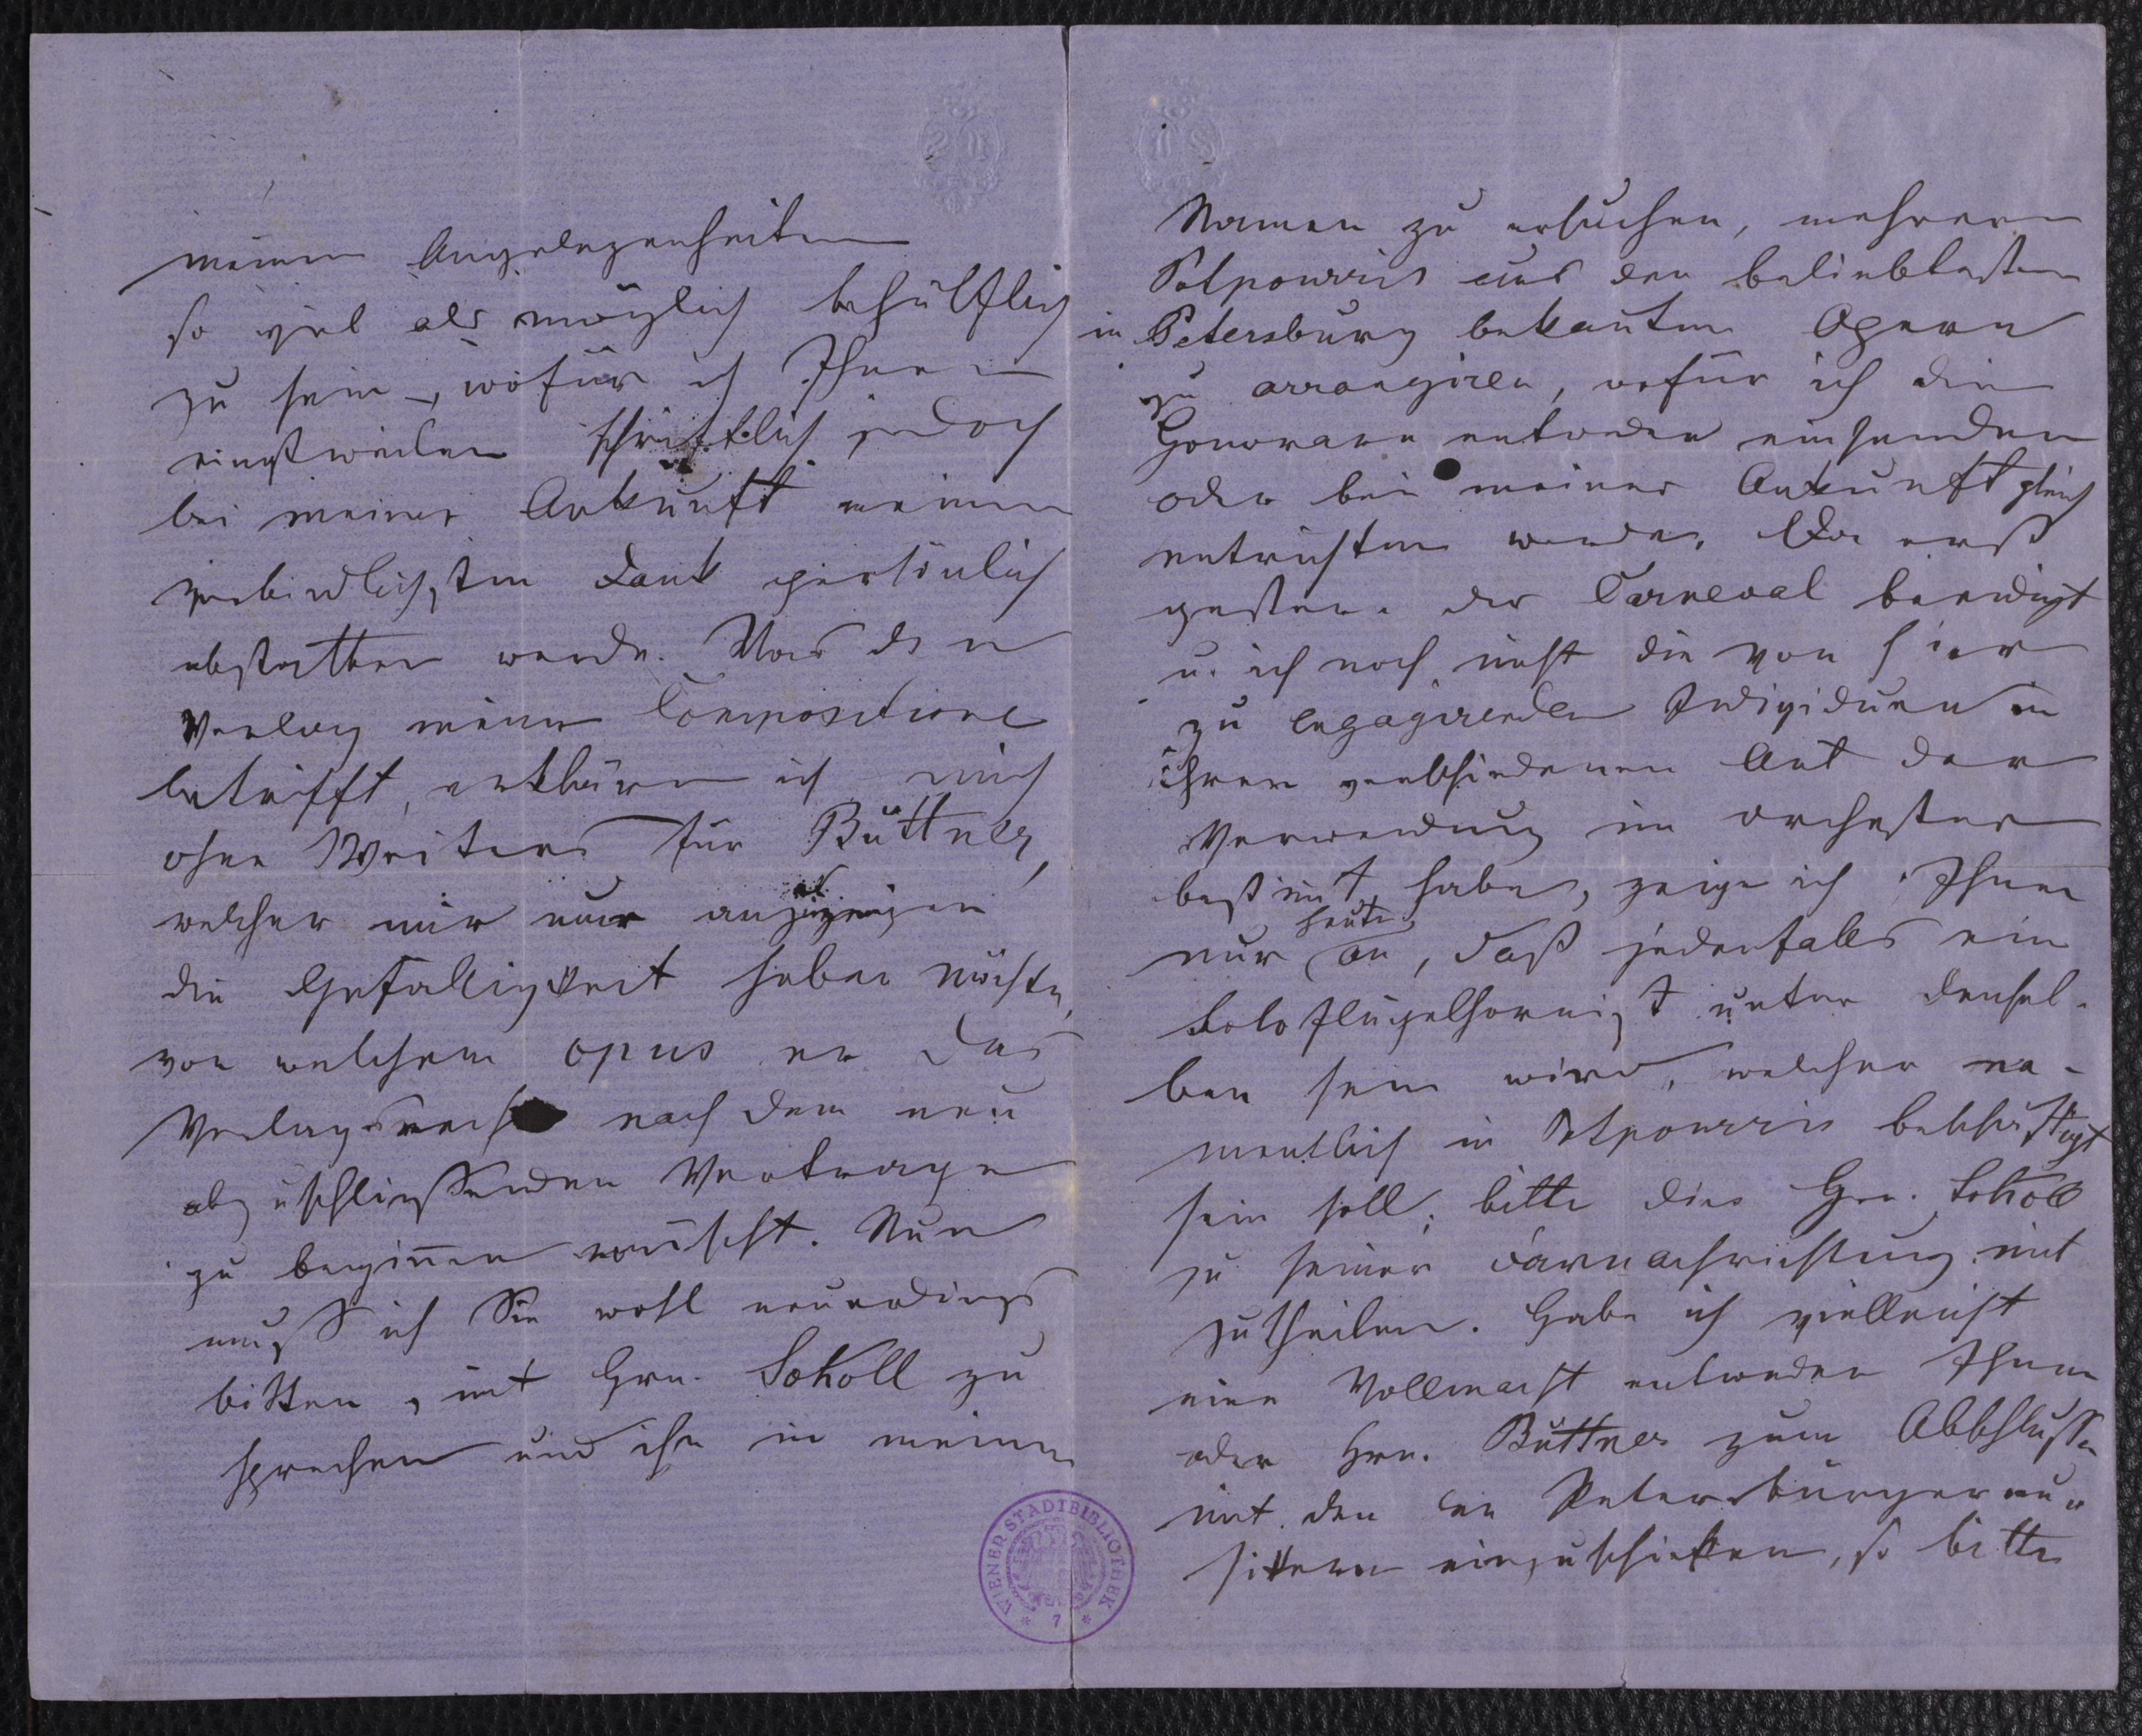 meinen Angelegenheiten
so viel als möglich behülflich
zu sein, wofür ich Ihnen
einstweilen schriftlich jedoch
bei meiner Ankunft meinen
verbindlichsten Dank persönlich
abstatten werde. Was den
Verlag meiner Compositionen
betrifft, erkläre ich mich
ohne Weiteres für Büttner,
welcher mir nur anzuzeigen
die Gefälligkeit haben möchte,
von welchem opus er das
Verlagsrecht nach dem neu
abzuschließenden Vertrage
zu beginnen wünscht. Nun
muß ich Sie wohl neuerdings
bitten, mit Hrn. Scholl zu
sprechen und ihn in meinem
Namen zu ersuchen, mehrere
Potpourris aus den beliebtesten
in Petersburg bekannten Opern
zu arrangiren, wofür ich die
Honorare entweder einsenden
oder bei meiner Ankunft gleich
entrichten werde. Da erst
gestern der Carneval beendigt
u. ich noch nicht die von hier
zu engagirenden Individuen in
ihrer verschiedenen Art der
Verwendung im Orchester
bestimt habe, zeige ich Ihnen
heute
nur an, daß jedenfalls ein
Soloflügelhornist unter densel-
ben sein wird, welcher na-
mentlich in Potpourris beschäftigt
sein soll; bitte dies Hrn. Scholl
zu seiner Darnachrichtung mit
zutheilen. Habe ich vielleicht
eine Vollmacht entweder Ihnen
oder Hrn. Büttner zum Abschlusse
mit den Petersburger Mu-
sikern einzuschicken, so bitte
WIENER STADTBIBLIOTHEK
* 7 *